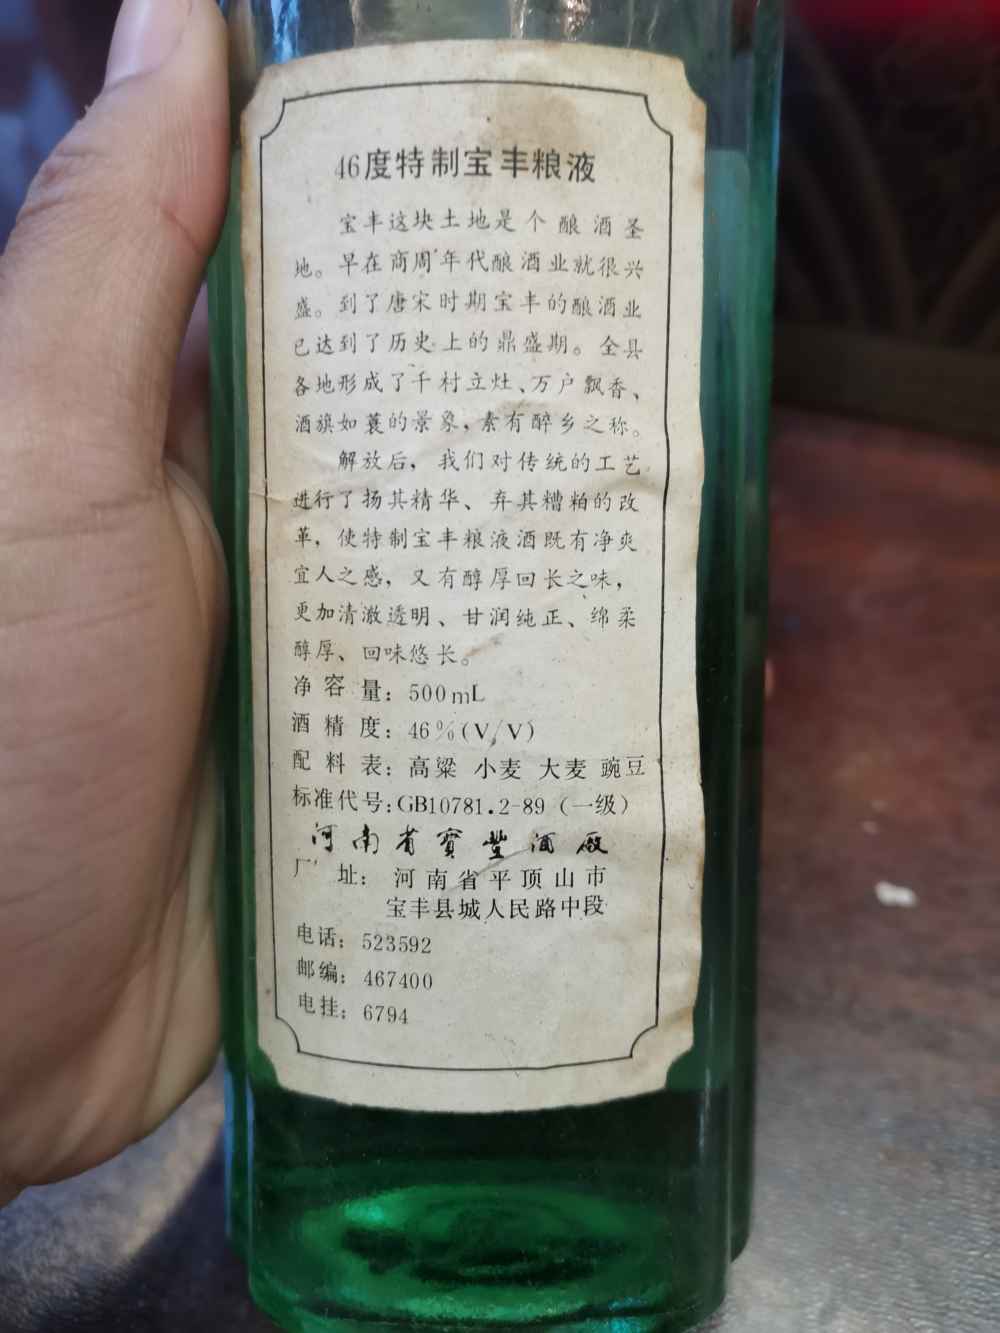 46度特制宝丰粮液
宝丰这块土地是个酿酒圣
地。早在商周年代酿酒业就很兴
盛。到了唐宋时期宝丰的酿酒业
已达到了历史上的鼎盛期。全县
各地形成了千村立灶、万户飘香、
酒旗如蓑的景象，素有醉乡之称。
解放后，我们对传统的工艺
进行了扬其精华、弃其糟粕的改
革，使特制宝丰粮液酒既有净爽
宜人之感，又有醇厚回长之味，
更加清澈透明、甘润纯正、绵柔
醇厚、回味悠长。
净容量：500mL
酒精度：46%(V/V)
配料表：高粱 小麦 大麦 豌豆
标准代号:GB10781.2-89（一级）
河南省寳豐酒廠
厂址：河南省平顶山市
宝丰县城人民路中段
电话：523592
邮编：467400
电挂：6794